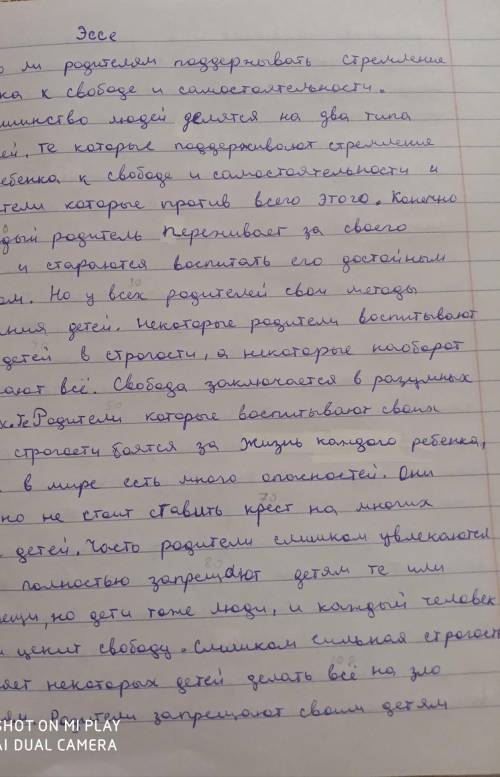 Эссе
о ли родителям поддерживать стремление
ка к свободе и самостоятельности.
шинство людей делятся на два типа
ей, те которые поддерживают стремление
ебенка к свободе и самостоятельности и
тели которые против всего этого. Конечно
дый родитель переживает за своего
и стараются воспитать его достойным
ом. Но у всех родителей свои методы
ния детей. Некоторые родители воспитывают
детей в строгости, а некоторые наоборот
ают всё. Свобода заключается в разумных
х. Те Родители которые воспитывают своих
строгости боятся за жизнь каждого ребенка,
в мире есть много опасностей. Они
но не стоит ставить крест на многих
детей. Часто родители слишком увлекаются
полностью запрещают детям те или
ещи, но дети тоже люди, и каждый человек
и ценит свободу. Слишком сильная строгость
яет некоторых детей делать всё на зло
ям. Родители запрещают своим детям
SHOT ON MI PLAY
AI DUAL CAMERA